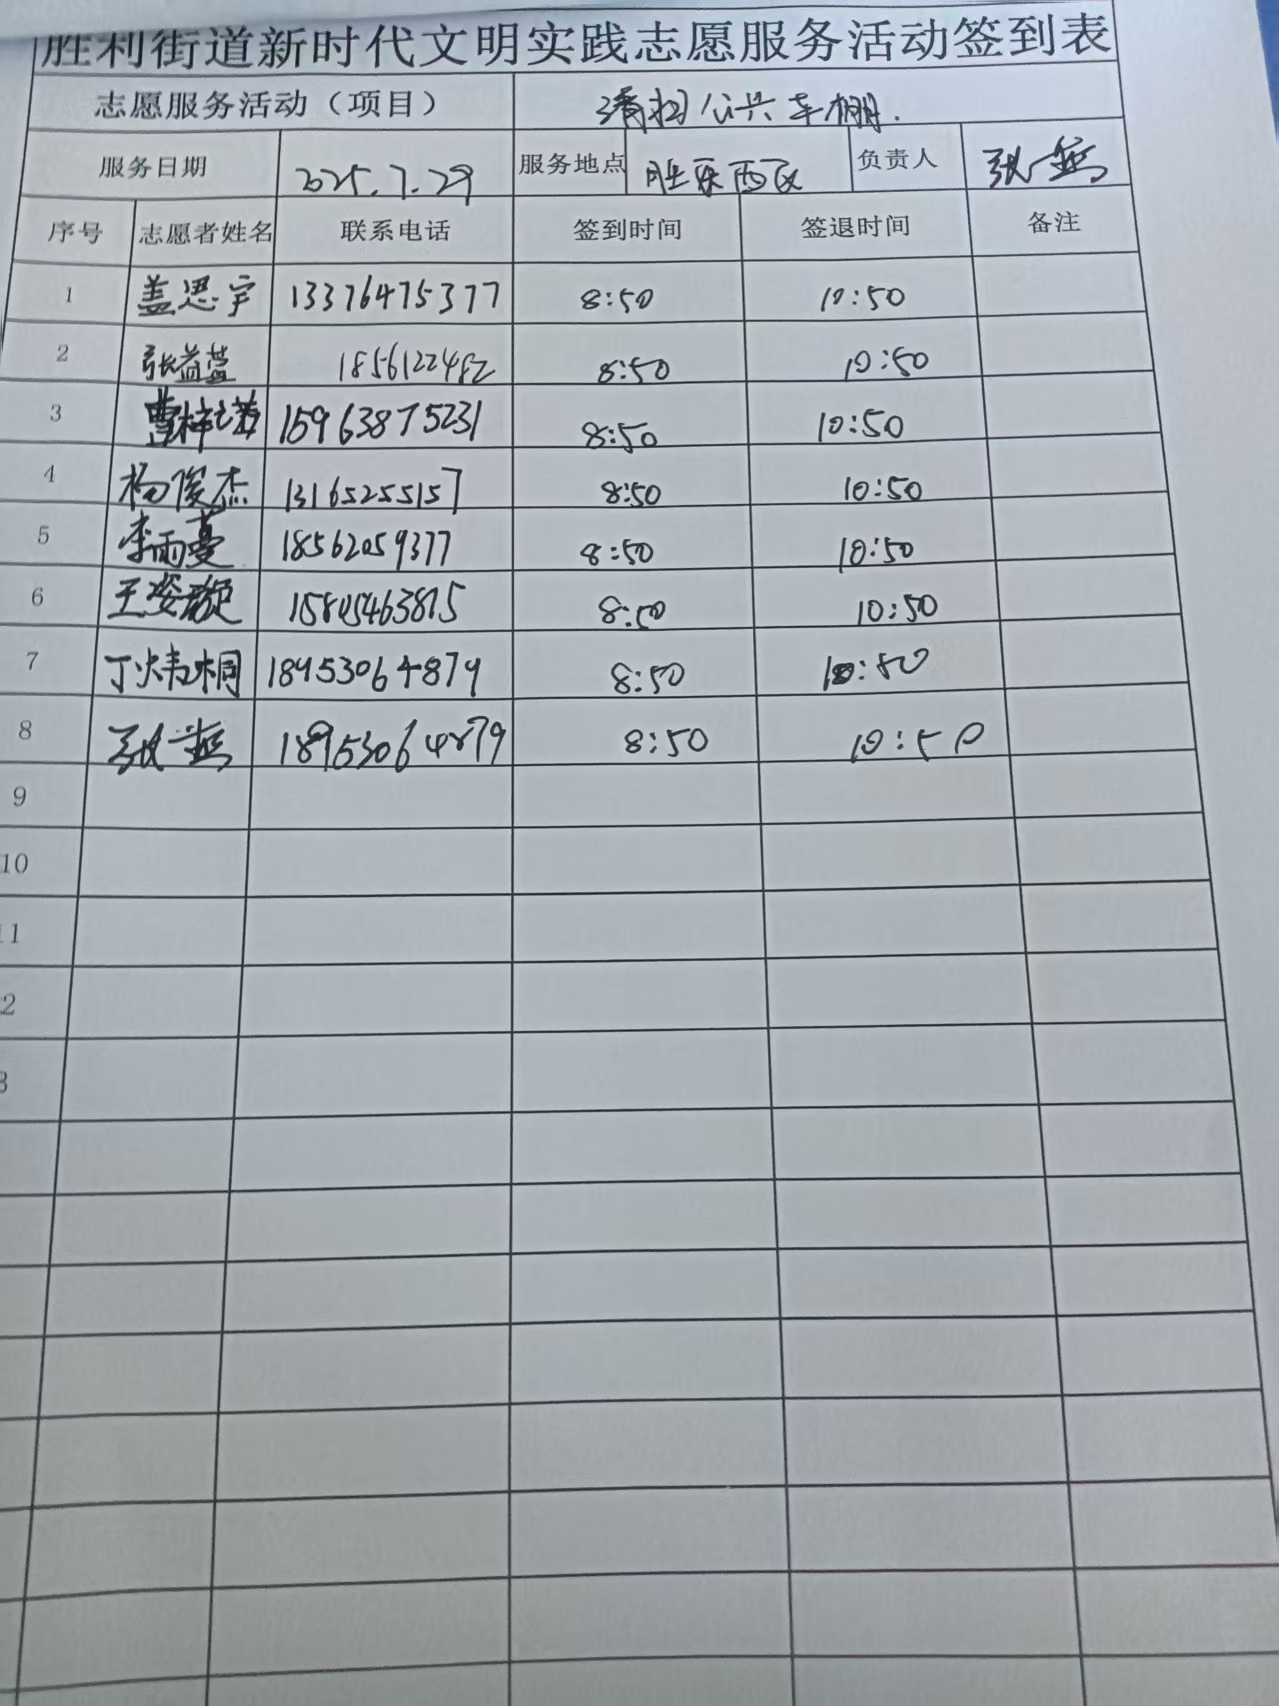 胜利街道新时代文明实践志愿服务活动签到表
志愿服务活动（项目） 清扫公共车棚.
服务日期 2025.7.29 服务地点 胜东西区 负责人 张燕
序号 志愿者姓名 联系电话 签到时间 签退时间 备注
1 盖思宇 13376475377 8:50 10:50
2 张益萱 8:50 10:50
3 曹梓诺 15963875231 8:50 10:50
4 杨俊杰 13165255157 8:50 10:50
5 李雨蔓 18562059377 8:50 10:50
6 王姿璇 15805463815 8:50 10:50
7 丁炜桐 18953064879 8:50 10:50
8 张燕 18953064879 8:50 10:50
9
10
11
2
3